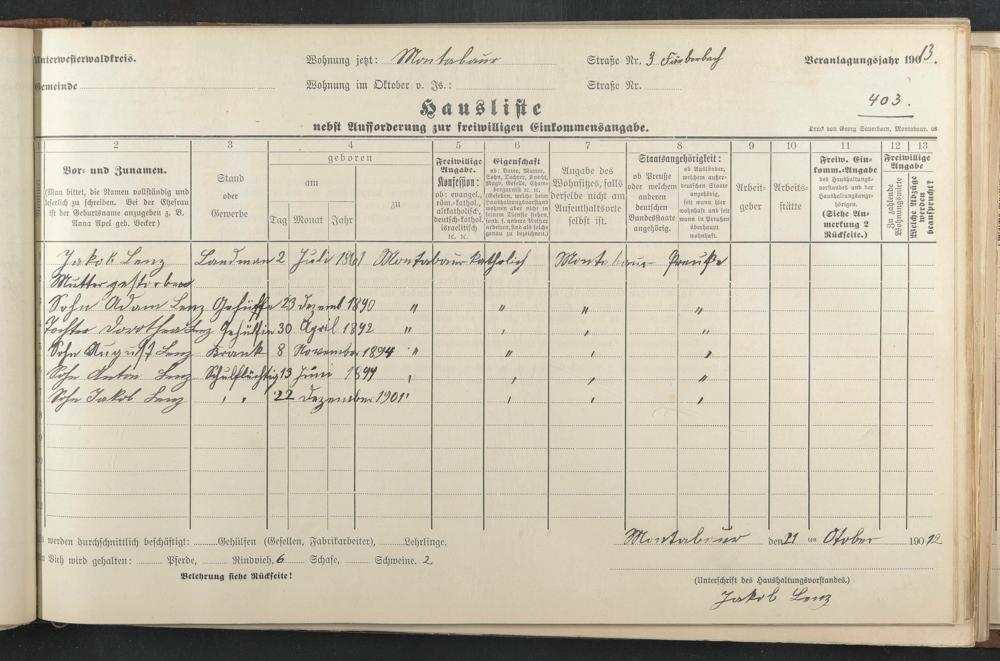 Unterwesterwaldkreis. Wohnung jetzt: Montabaur Straße Nr. 3 Färberbach Veranlagungsjahr 1913.
Gemeinde Wohnung im Oktober v. Js.: Straße Nr.
403.
Hausliste
nebst Aufforderung zur freiwilligen Einkommensangabe.
Druck von Georg Sauerborn, Montabaur. 08
2 3 4 5 6 7 8 9 10 11 12 13
Vor- und Zunamen.
(Man bittet, die Namen vollständig und
leserlich zu schreiben. Bei der Ehefrau
ist der Geburtsname anzugeben z. B.
Anna Apel geb. Becker)
Stand
oder
Gewerbe
geboren
am
Tag Monat Jahr
zu
Freiwillige
Angabe.
Konfession:
ob: evangel.,
röm.-kathol.,
altkatholisch,
deutsch-kathol.
israelitisch
rc. rc.
Eigenschaft
Angabe des
Wohnsitzes, falls
derselbe nicht am
Aufenthaltsorte
selbst ist.
Staatsangehörigkeit:
ob Preuße
oder welchem
anderen
deutschen
Bundesstaate
angehörig.
ob Ausländer,
welchem außer-
deutschen Staate
angehörig,
seit wann hier
wohnhaft und seit
wann in Preußen
überhaupt
wohnhaft.
Arbeit-
geber
Arbeits-
stätte
Freiw. Ein-
komm.-Angabe
des Haushaltungs-
vorstandes und der
Haushaltungsange-
hörigen.
(Siehe An-
merkung 2
Rückseite.)
Freiwillige
Angabe
Zu zahlende
Wohnungsmiete
Welche Abzüge
werden
beansprucht?
Jakob Lenz Landman 2 Juli 1861 Montabaur katholich Montabaur Preuße
Mutter gestorben
Sohn Adam Lenz Gehülfe 23 Dezemb 1890 " " " "
Tochter Dorothea Lenz Gehülfin 30 April 1892 " " " "
Sohn August Lenz Krank 8 November 1894 " " " "
Sohn Anton Lenz Schulflichtig 13 Juni 1899 " " " "
Sohn Jakob Lenz " " 22 Dezember 1901 " " " "
werden durchschnittlich beschäftigt: Gehülfen (Gesellen, Fabrikarbeiter), Lehrlinge.
Vieh wird gehalten: Pferde, Rindvieh, 6 Schafe, Schweine. 2
Belehrung siehe Rückseite!
Montabaur den 21 ten Otober 1912
(Unterschrift des Haushaltungsvorstandes.)
Jakob Lenz